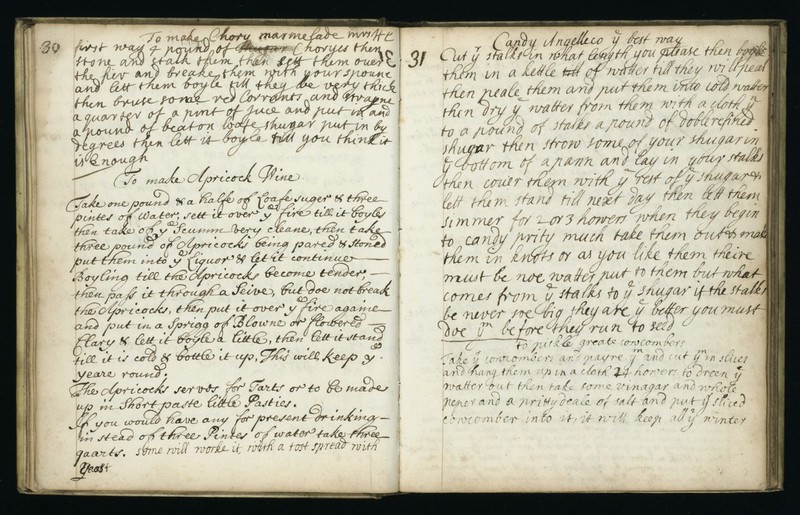 30
To make Chory marmelade mrs HL
first way 4 pound of Choryes then
stone and stalk them then sett them over
the fier and breake them with your spoune
and lett them boyle till they be very thick
then bruse some red Corrants and strayne
a quarter of a pint of Juce and put in and
a pound of beaton loafe shugar put in by
degrees then lett it boyle till you think it
is Enough
To make Apricock Wine
Take one pound & a halfe of Loafe suger & three
pintes of Water, sett it over yͤ fire till it boyles
then take of yͤ Scumm very cleane, then take
three pound of Apricocks being pared & stoned
put them into yͤ Liquor & let it continue
Boyling till the Apricocks become tender,
then pass it through a Seive, but doe not break
the Apricocks, then put it over yͤ fire againe
and put in a Sprigg of Blowne or flowered
Clary & lett it boyle a little, then let it stand
till it is cold & bottle it up, This will keep yͤ
yeare round.
The Apricocks serves for Tarts or to be made
up in Short paste little Pasties.
If you would have any for present drinking
in stead of three Pintes of water take three
quarts. some will worke it with a tost spread with
yeast
31
Candy Angelleco yͤ best way
Cut yͤ stalks in what length you please then boyle
them in a kettle of watter till they will peal
then peale them and put them into cold watter
then dry yͤ watter from them with a cloth yⁿ
to a pound of stalks a pound of doblerefined
shugar then strow some of your shugar in
yͤ bottom of a pann and lay in your stalks
then couer them with yͤ rest of yͤ shugar &
lett them stand till next day then lett them
simmer for 2 or 3 howers when they begin
to candy prity much take them out & make
them in knots or as you like them theire
must be noe watter put to them but what
comes from yͤ stalks to yͤ shugar if the stalks
be never soe big they are yͤ better you must
doe yᵐ before they run to seed
to pickle greate cowcombers
Take yͤ cowcombers and payre yᵐ and cut yᵐ in slices
and hang them up in a cloth 24 howers to dreen yͤ
watter out then take some vinagar and whole
peper and a pritty deale of salt and put yͤ sliced
cowcomber into it, it will keep all yͤ winter